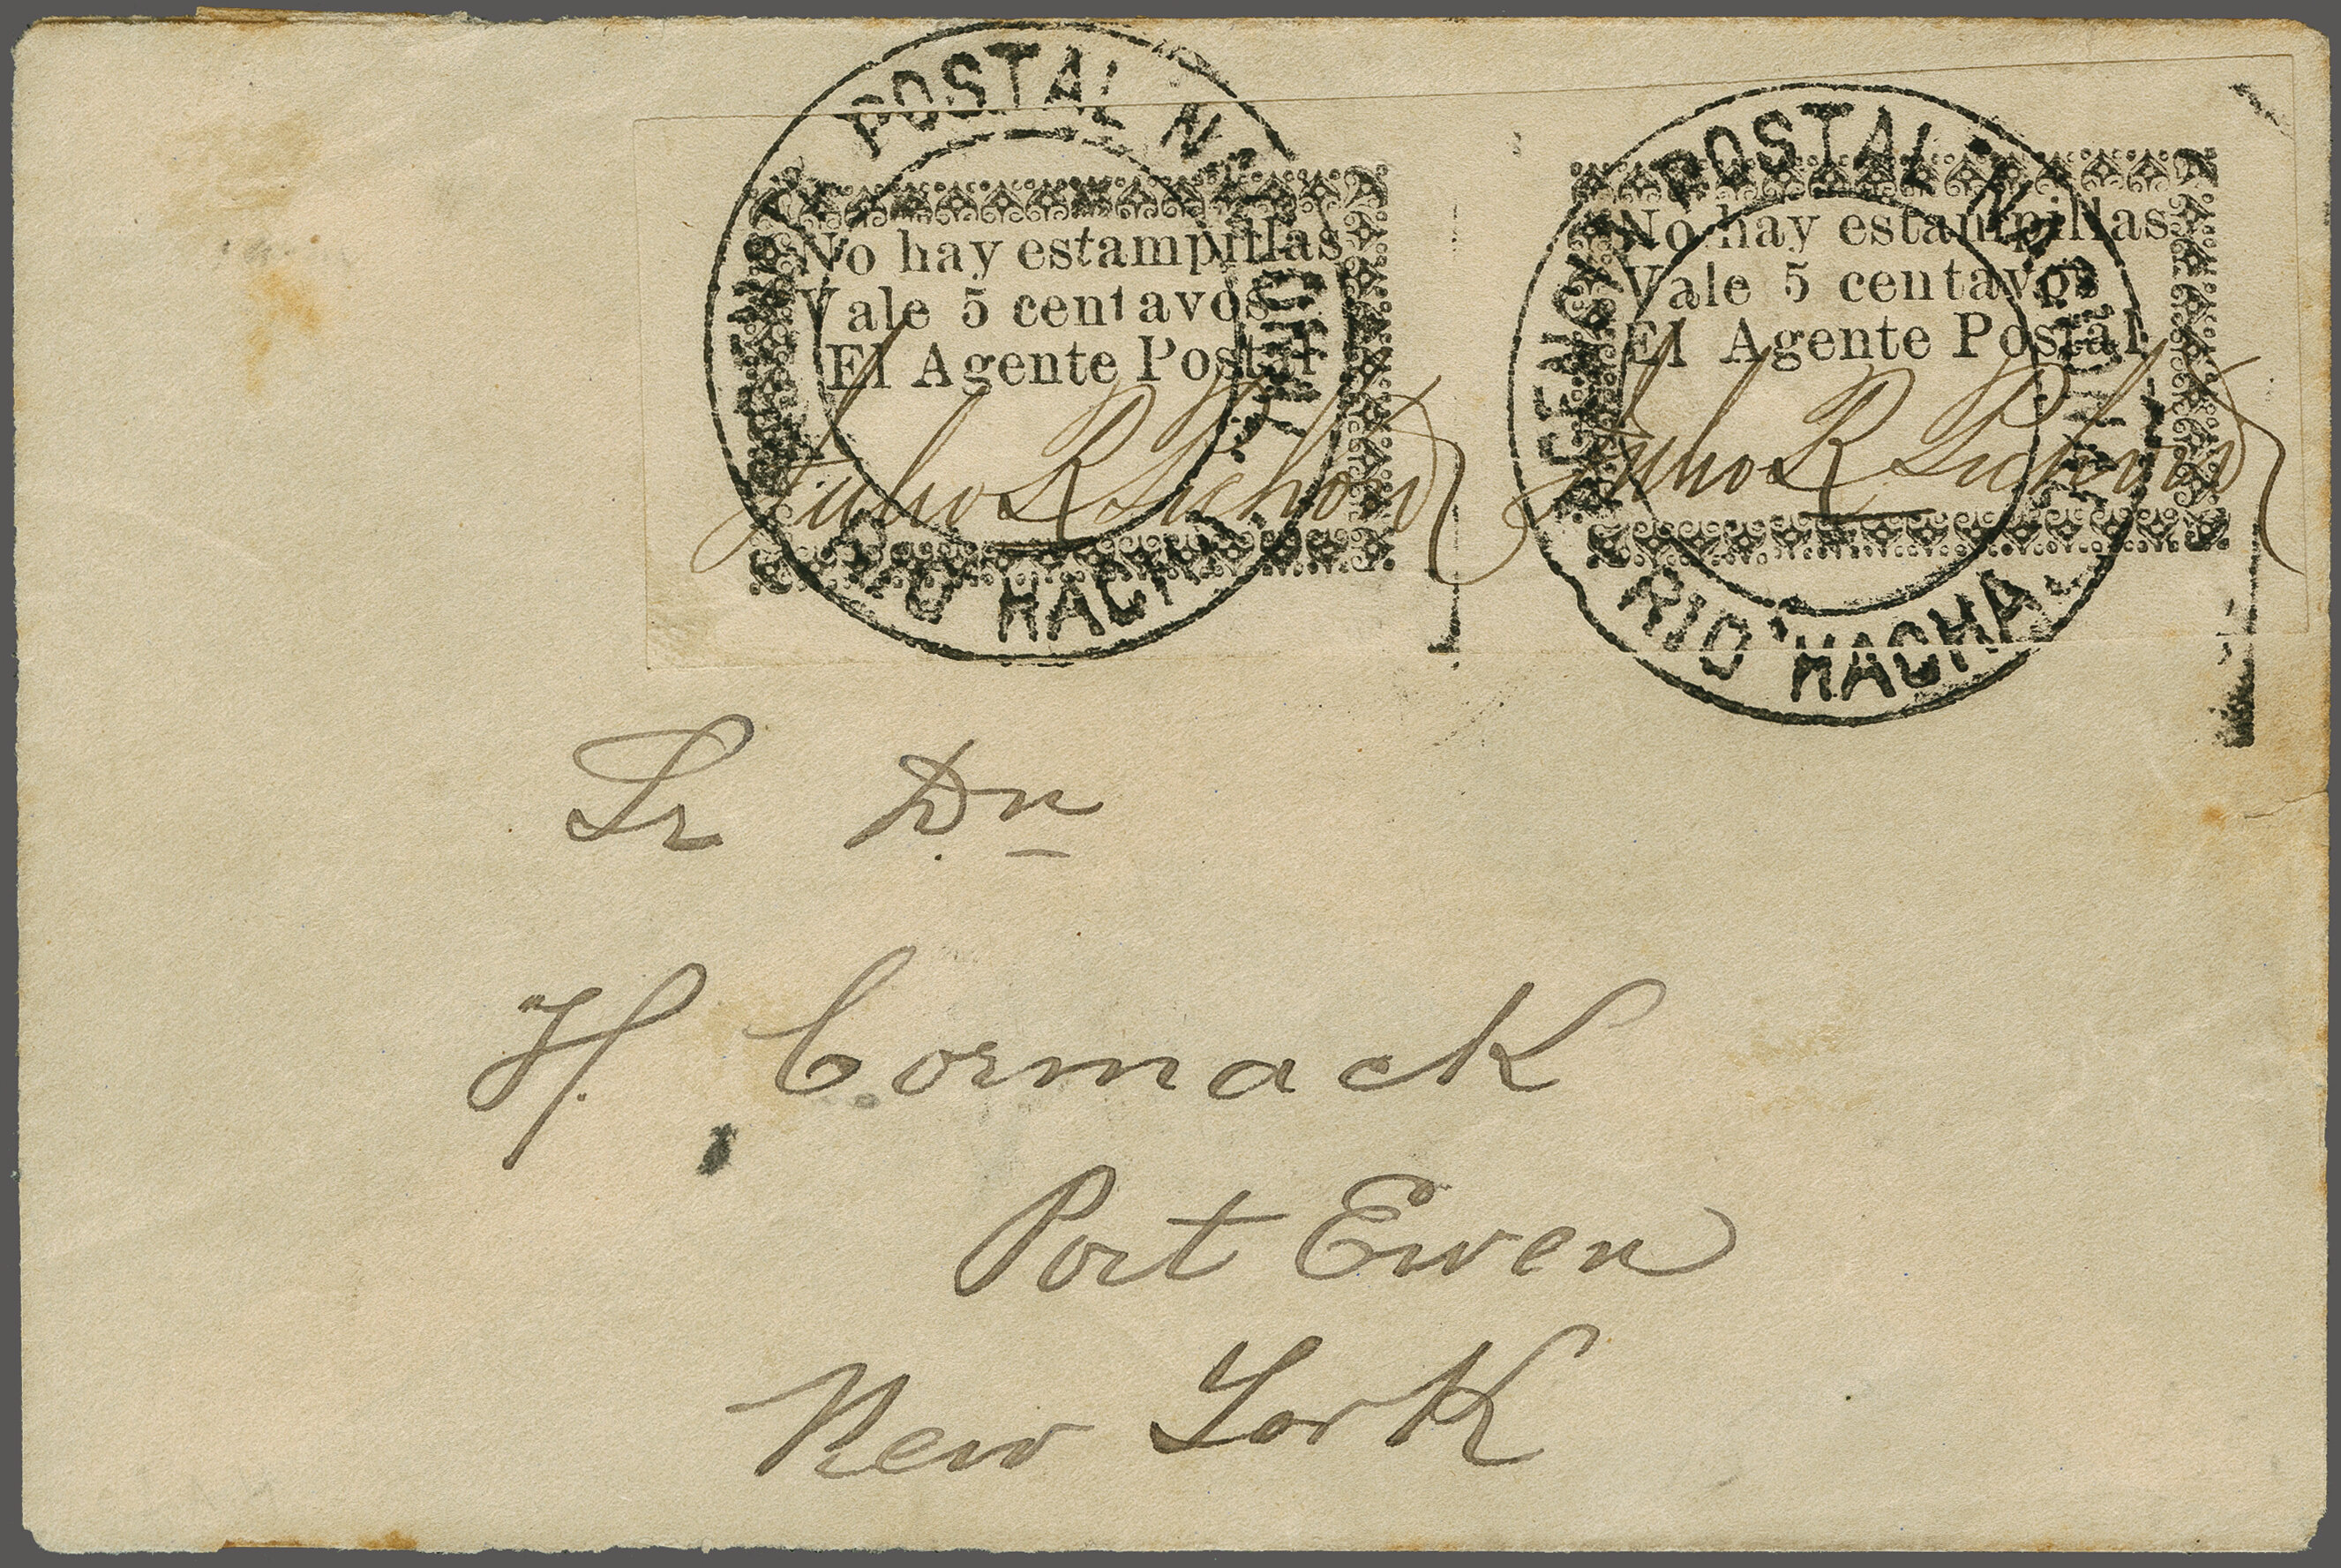 AGENCIA POSTAL NACIONAL
RIO HACHA.
No hay estampillas
Vale 5 centavos
El Agente Postal
Julio R
AGENCIA POSTAL NACIONAL
RIO HACHA.
No hay estampillas
Vale 5 centavos
El Agente Postal
Julio R
Sr Dn
H. Cormack
Port Ewen
New York